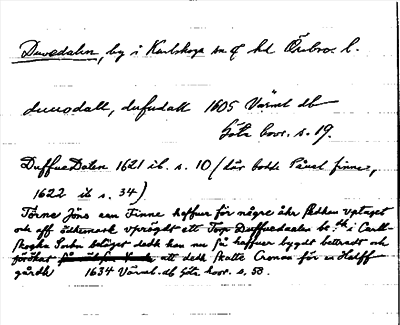 Duvedalen, by i Karlskoga sn o hd Örebro l.
duuodall, dufudall 1605 Värml db
Göta hovr. s. 19.
DuffueDalen 1621 ib. s. 10 (där bodde Påuel finne,
1622 ib s. 34)
Törne Jöns een Finne haffuer för någre åhr sedhen vptaget
och aff ödhemark vprögdt ett Torp Duffuedalen be:th i Carll-
skogha Sochn beläget dedh han nu på haffuer bygdt betradt och
att dedh skatte Cronan för en Halff
gårdh 1634 Värml. db Göta hovr. s. 58.